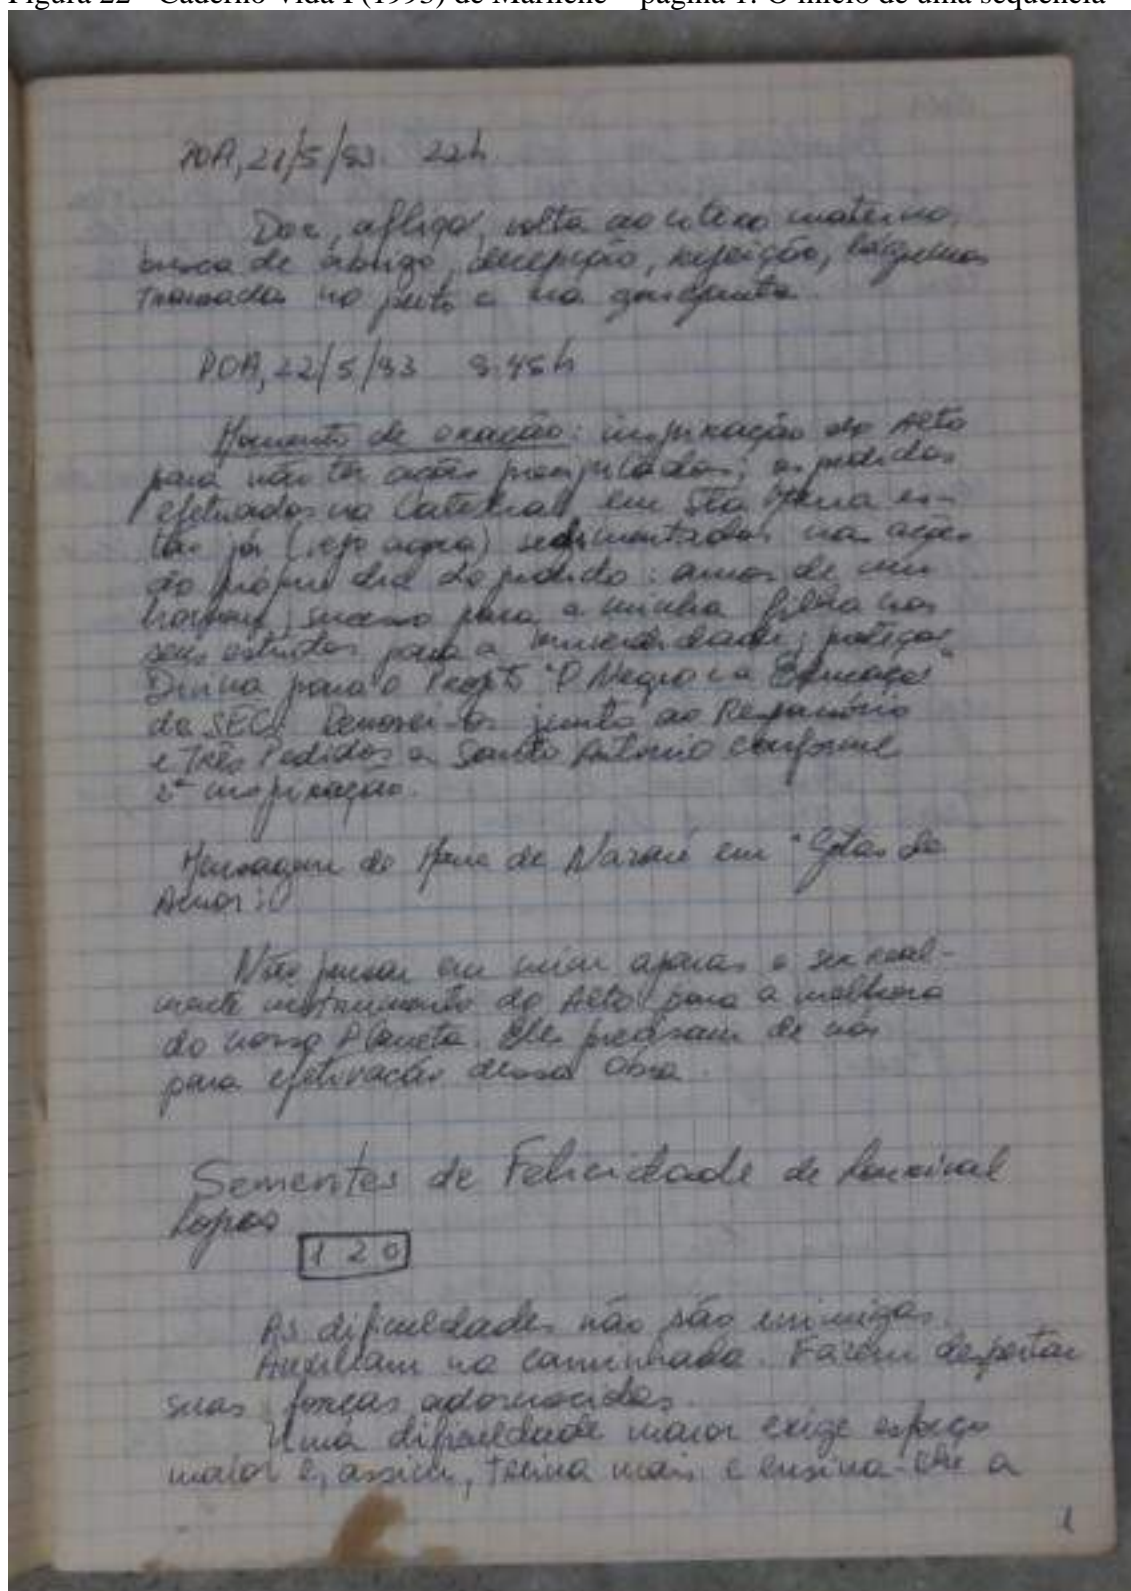 Figura 22 - Caderno Vida I (1993) de Marilene – página 1: O início de uma sequência
POA, 21/5/93. 22h
Dor, aflição, volta ao útero materno,
busca de abrigo, decepção, rejeição, lágrimas
trancadas no peito e na garganta.
POA, 22/5/93 9:45h
Momento de oração: inspiração do Alto
para não ter ações precipitadas; os pedidos
efetuados na Catedral em Sta Maria es-
tão já (vejo agora) sedimentados nas ações
do próprio dia do pedido: amor de um
homem; sucesso para a minha filha nos
seus estudos para a universidade; proteção
Divina para o Projeto "O Negro e a Educação"
da SEC. Renovei-os junto ao Responsório
e Três Pedidos a Santo Antonio conforme
2ª inspiração.
Mensagem de Maria de Nazaré em "Gotas de
Amor":
Não pensar em mim apenas e ser real-
mente instrumento do Alto para a melhora
do nosso Planeta. Eles precisam de nós
para efetivação dessa obra.
Sementes de Felicidade de Lourival
Lopes
1 2 0
As dificuldades não são inimigas.
Auxiliam na caminhada. Fazem despertar
suas forças adormecidas.
Uma dificuldade maior exige esforço
maior e, assim, treina mais e ensina-lhe a
1